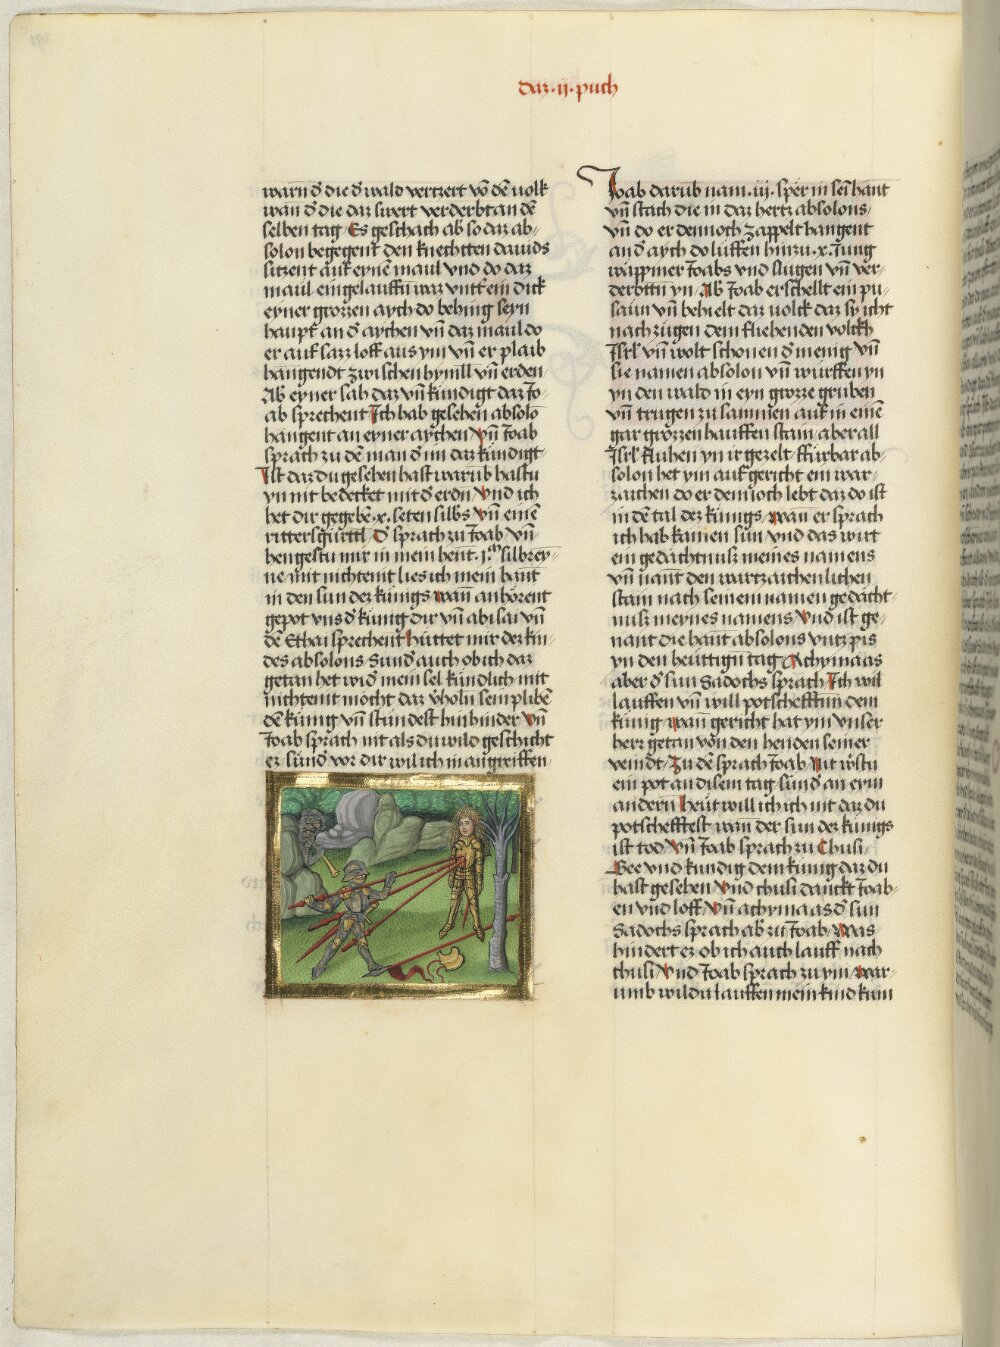 daz · ij · puch
warn d̄ die d̄ wald vertzert võ dē volk
wan d̄ die daz swert verderbt an dē
selben tag Es geschach ab̄ so daz ab-
solon begegent den knechtten dauids
sitzent auf eynē maul vnd do daz
maul eingelauffn waz vntt̄ ein dick
eyner grozzen aych do behing seyn
haupt an d̄ aychen vn̄ daz maul do
er auf sazz loff aus ym vn̄ er plaib
hangendt zwischen hymll vn̄ erden
Ab̄ eyner sah daz vn̄ kundigt daz Jo-
ab sprechent Ich hab gesehen absolō
hangent an eyner aychen Vn̄ Joab
sprach zu dē man d̄ im daz kundigt
Ist daz du gesehen hast warūb hastu
yn nit bedecket mit d̄ erdn Vnd ich
het dir gegebē · x · seten silbs Vn̄ einē
ritters gürttl D̄ sprach zu Joab Vn̄
hengestu mir in mein hent · jm · silbrey-
ne mit nichte nit lies ich mein hant
in den sun dez kunigs wann an horent
gepot vns d̄ kunig dir vn̄ abisai vn̄
dē Ethai sprechent hüttet mir dez kin-
des absolons Sund̄ auch ob ich daz
getan het wid̄ mein sel kundlich mit
nichte nit mocht daz v̄holn sein plibē
dē kunig vn̄ stundest hin hinder Vn̄
Joab sprach nit als du wild geschicht
ez sund̄ vor dir wil ich in angreiffen
Joab darūb nam · iij · sper in sei hant
vn̄ stach die in daz hertz absolons
vn̄ do er dennoch zappelt hangent
an d̄ aych do luffen hinzu · x · Jung
wappiner Joabs vnd slugen vn̄ ver-
derbttn yn Ab̄ Joab erschellt ein pu-
saun vn̄ behielt daz volck daz sy icht
nach zugen dem fliehenden volckh
Isrl̄ vn̄ wolt schonen d̄ menig vn̄
sie namen absolon vn̄ wurffen yn
yn den wald in eyn grozze gruben
vn̄ trugen zu sammen auf in einē
gar grozzen hauffen stain aber all
Isrl̄ fluhen yn ir gezelt ffurbar ab-
solon het ym auf gericht ein war-
zaichen do er dennoch lebt daz do ist
in dē tal dez kunigs wan er sprach
ich hab kainen sun vnd das wirt
ein gedachtnusz meines namens
vn̄ nant den wartzaichenlichen
stain nach seinem namen gedacht-
nusz meynes namens Vnd ist ge-
nant die hant absolons vntz pis
yn den heuttign tag Achymaas
aber d̄ sun Sadochs sprach Ich wil
lauffen vn̄ will potschefften dem
kunig wan gericht hat ym vnser
herr getan von den henden seiner
veindt Zu dē sprach Joab Nit wstu
ein pot an disem tag sund̄ an eym
andern heut will ich ich nit daz du
potschefftest wan der sun dez kunigs
ist tod Vn̄ Joab sprach zu Chusi
Gee vnd kundig dem kunig daz du
hast gesehen Vnd chusi danckt Joab-
en vnd loff Vn̄ achymaas d̄ sun
Sadochs sprach ab̄ zu Joab Was
hindert ez ob ich auch lauff nach
chusi Vnd Joab sprach zu ym War-
umb wildu lauffen mein kind kum